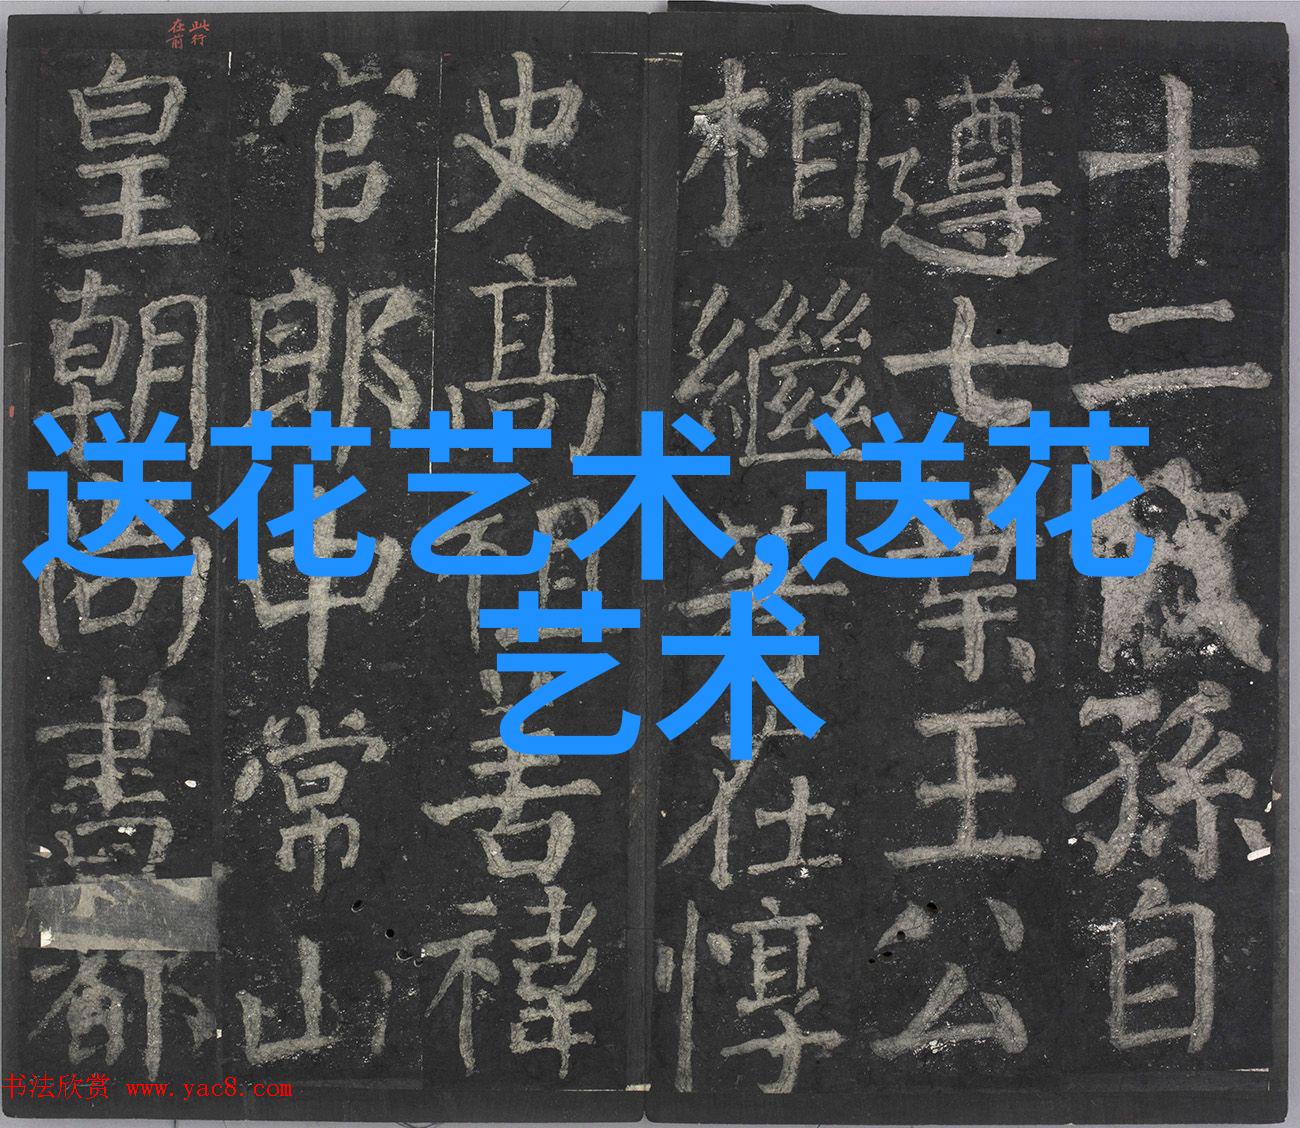 此行
在前
十二孫自
遵七葉王公
相繼著在惇
史高祖善禕
官郎中常山
皇朝尚書都
送花艺术,送花
艺术
书法欣赏 www.yac8.com